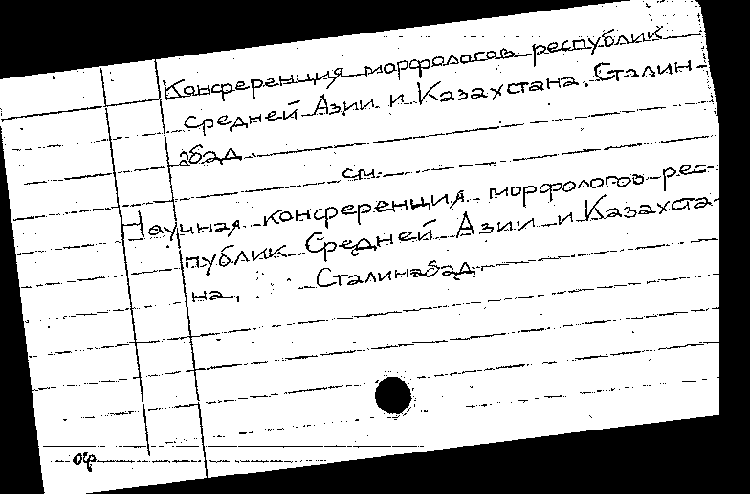 Конференция морфологов республик
средней Азии и Казахстана. Сталин-
абад
см.
Научная конференция морфологов рес-
публик Средней Азии и Казахста-
на, Сталинабад.